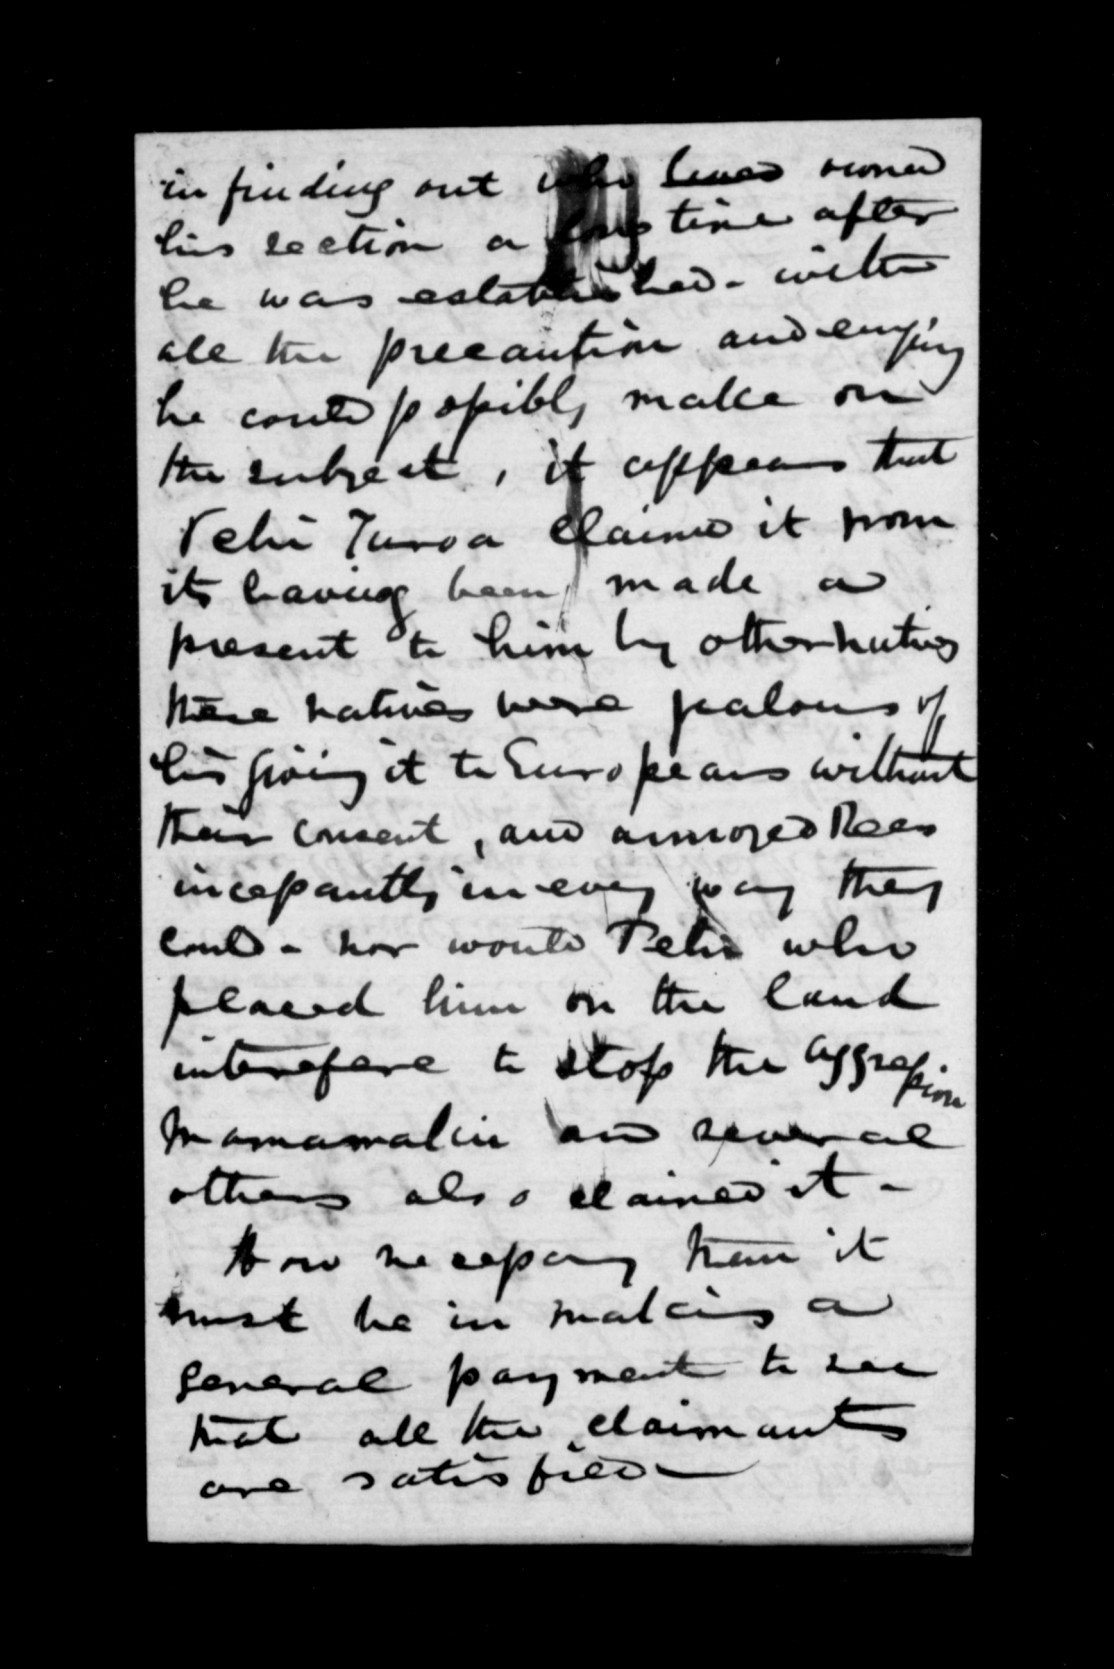 in finding out who owned
his section a long time after
he was established - with
all the precaution and enquiry
he could possibly make on
the subject, it appears that
Pehi Turoa claimed it from
its having been made a
present to him by other natives
these natives were jealous of
his giving it to Europeans without
their consent, and annoyed Rees
incessantly in every way they
could - nor would Pehi who
placed him on the land
interefere to stop the aggression
Mamamakin and several
others also claimed it -
How necessary then it
must be in making a
general payment to see
that all the claimants
are satisfied -